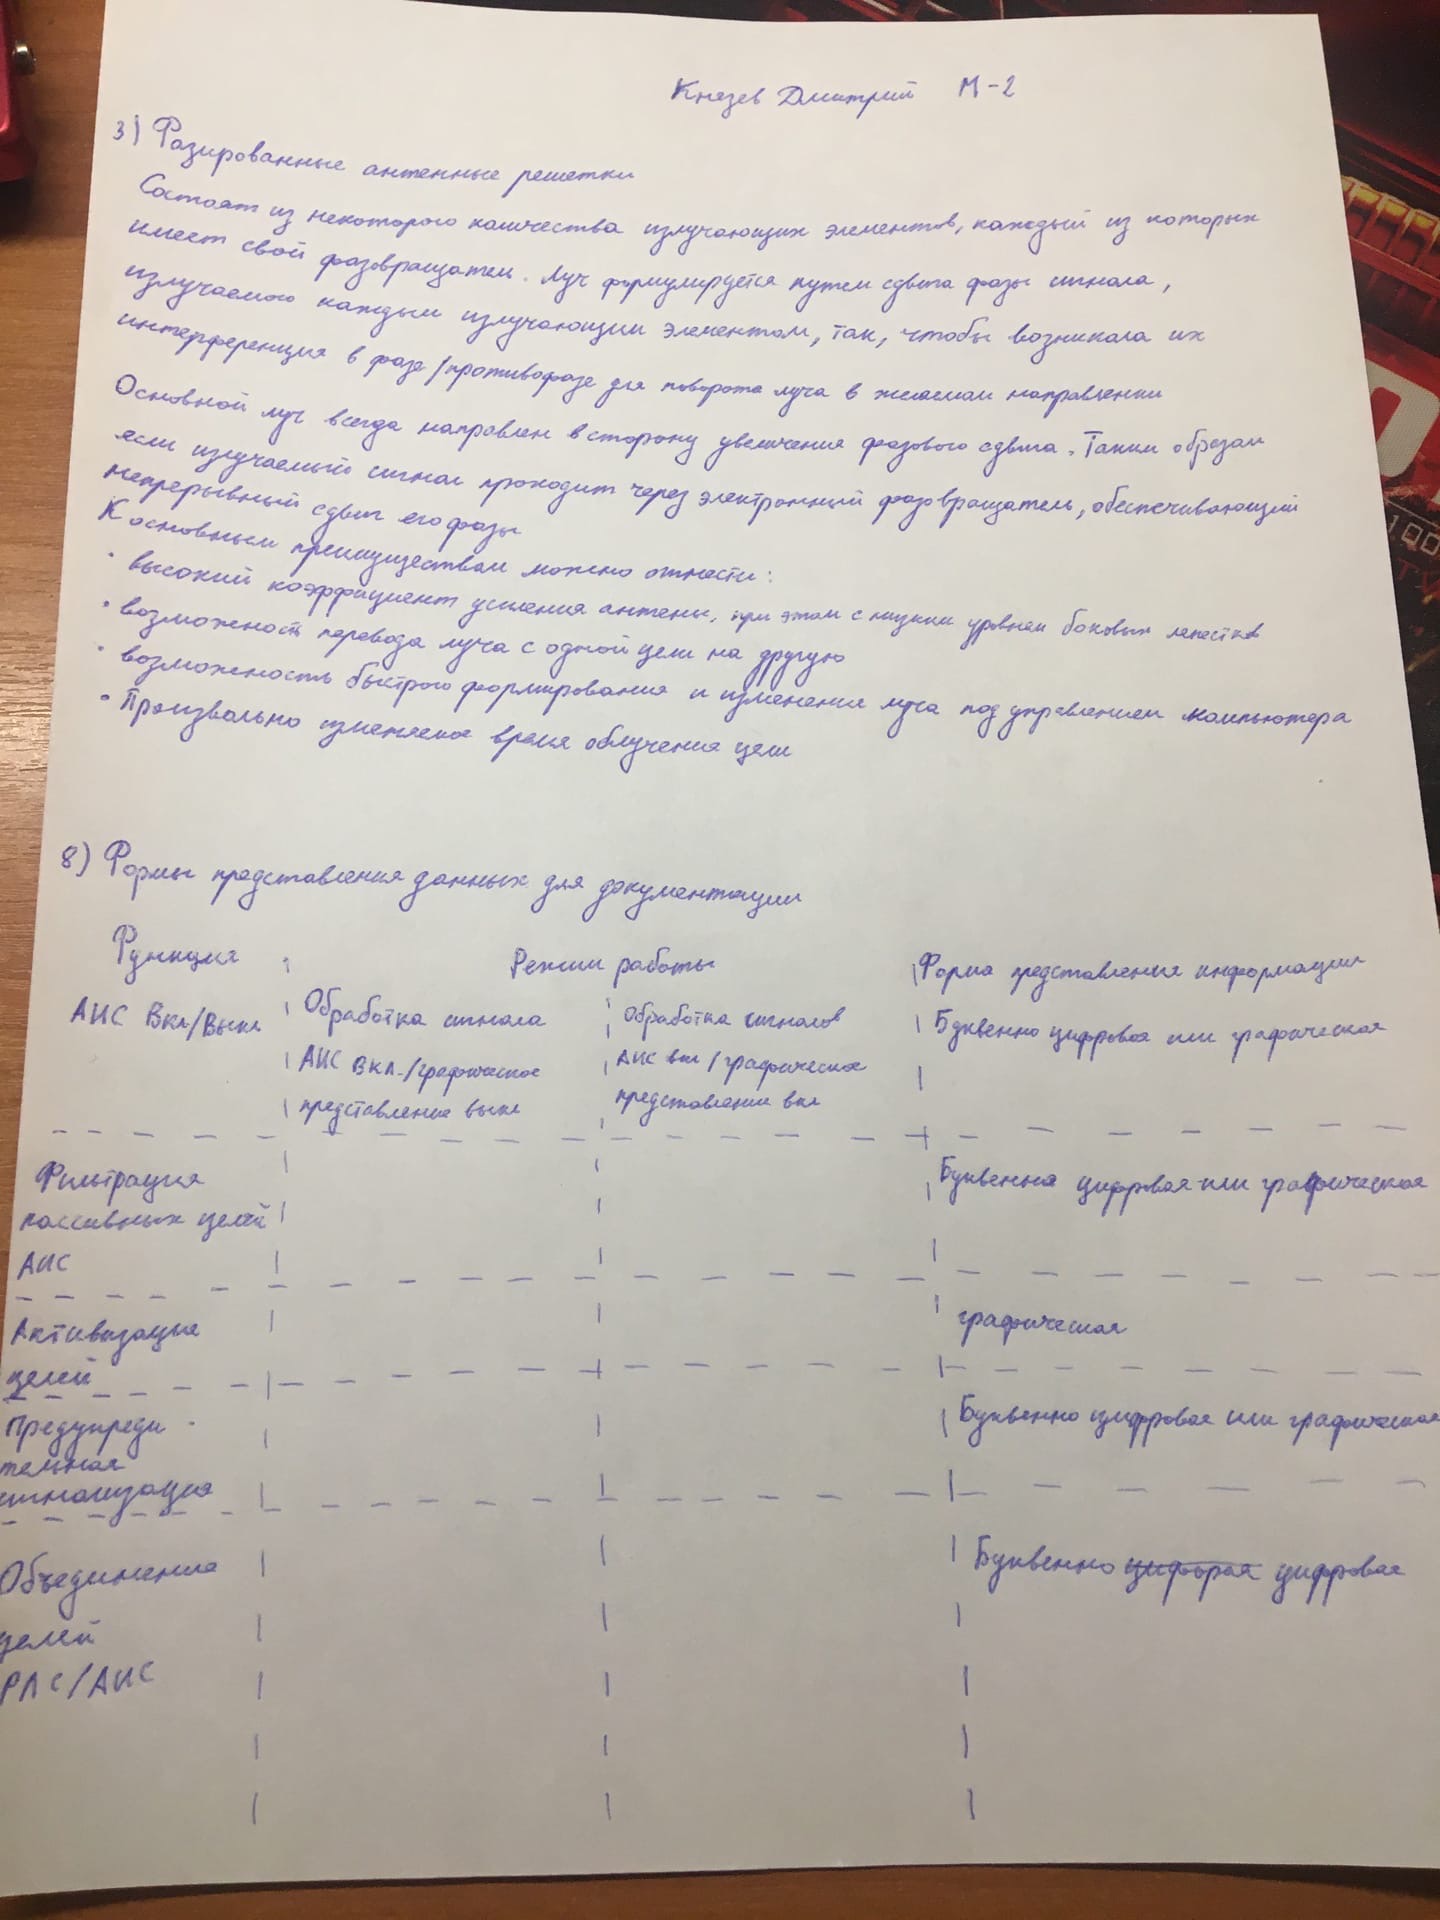 Князев Дмитрий М-2
3) Фазированные антенные решетки
Состоят из некоторого количества излучающих элементов, каждый из которых
имеет свой фазовращатель. Луч формулируется путем сдвига фазы сигнала,
излучаемого каждым излучающим элементом, так, чтобы возникала их
интерференция в фазе/противофазе для поворота луча в желаемом направлении
Основной луч всегда направлен в сторону увеличения фазового сдвига. Таким образом
если излучаемый сигнал проходит через электронный фазовращатель, обеспечивающий
непрерывный сдвиг его фазы
К основным преимуществам можно отнести:
· высокий коэффициент усиления антены, при этом с низким уровнем боковых лепестков
· возможность перевода луча с одной цели на другую
· возможность быстрого формирования и изменения луча под управлением компьютера
· Произвольно изменяемое время облучения цели
8) Формы представления данных для документации
Функция Режим работы Форма представления информации
АИС Вкл/Выкл Обработка сигнала Обработка сигналов Буквенно цифровая или графическая
АИС вкл./графическое АИС вкл/графическое
представление выкл представление вкл
Фильтрация Буквенно цифровая или графическая
пассивных целей
АИС
Активизация графическая
целей
Предупреди Буквенно цифровая или графическая
тельная
сигнализация
Объединение Буквенно цифровая
целей
РЛС/АИС
100